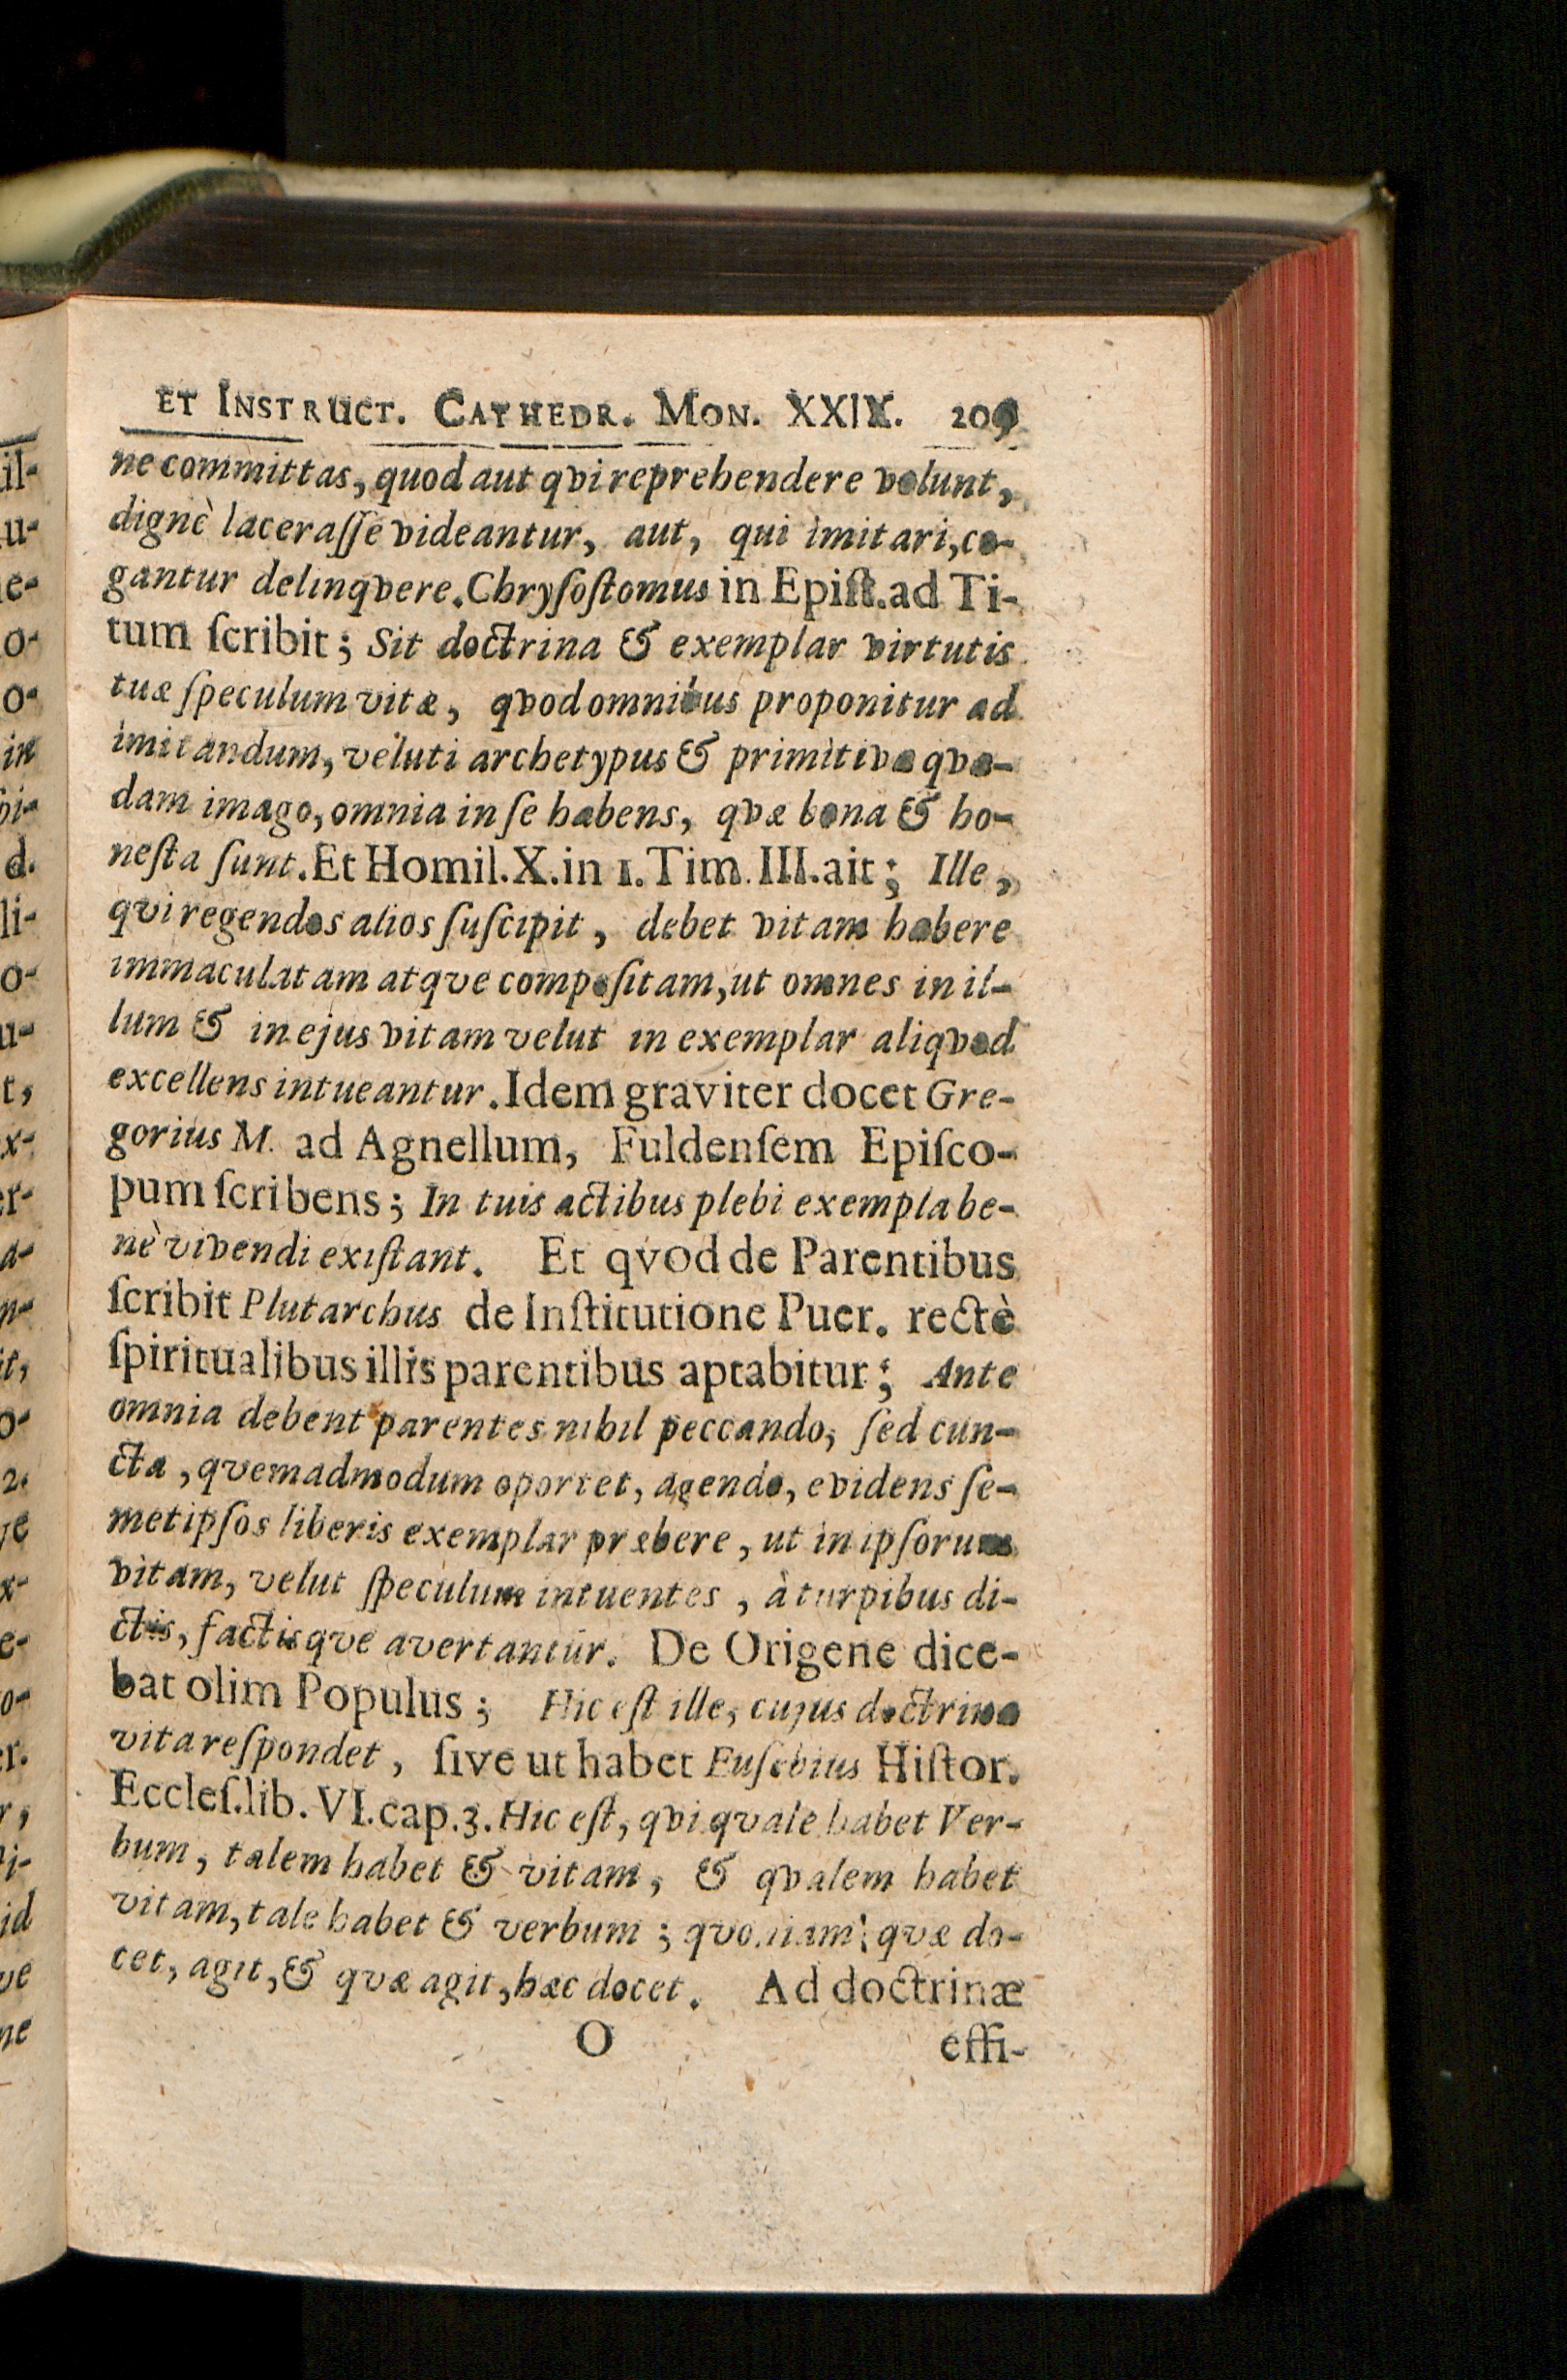 ET INSTRUCT. CATHEDR. MON. XXIX. 209
ne committas, quod aut qvi reprehendere volunt,
dignè laceraſſe videantur, aut, qui imitari, co-
gantur delinqvere. Chryſoſtomus in Epiſt. ad Ti-
tum ſcribit; Sit doctrina & exemplar virtutis
tuæ ſpeculum vitæ, qvod omnibus proponitur ad
imitandum, veluti archetypus & primitiva qvæ-
dam imago, omnia in ſe habens, qvæ bona & ho-
neſta ſunt. Et Homil. X. in 1. Tim. III. ait; Ille,
qvi regendos alios ſuſcipit, debet vitam habere
immaculatam atqve compoſitam, ut omnes in il-
lum & in ejus vitam velut in exemplar aliqvod
excellens intueantur. Idem graviter docet Gre-
gorius M. ad Agnellum, Fuldenſem Epiſco-
pum ſcribens; In tuis actibus plebi exempla be-
nè vivendi exiſtant. Et qvod de Parentibus
ſcribit Plutarchus de Inſtitutione Puer. rectè
ſpiritualibus illis parentibus aptabitur; Ante
omnia debent parentes nihil peccando, ſed cun-
cta, qvemadmodum oportet, agendo, evidens ſe-
metipſos liberis exemplar præbere, ut in ipſorum
vitam, velut ſpeculum intuentes, à turpibus di-
ctis, factisqve avertantur. De Origene dice-
bat olim Populus; Hic eſt ille, cujus doctrina
vita reſpondet, ſive ut habet Euſebius Hiſtor.
Eccleſ. lib. VI. cap. 3. Hic eſt, qvi qvale habet Ver-
bum, talem habet & vitam, & qvalem habet
vitam, tale habet & verbum; qvoniam, qvæ do-
cet, agit, & qvæ agit, hæc docet. Ad doctrinæ
O effi-